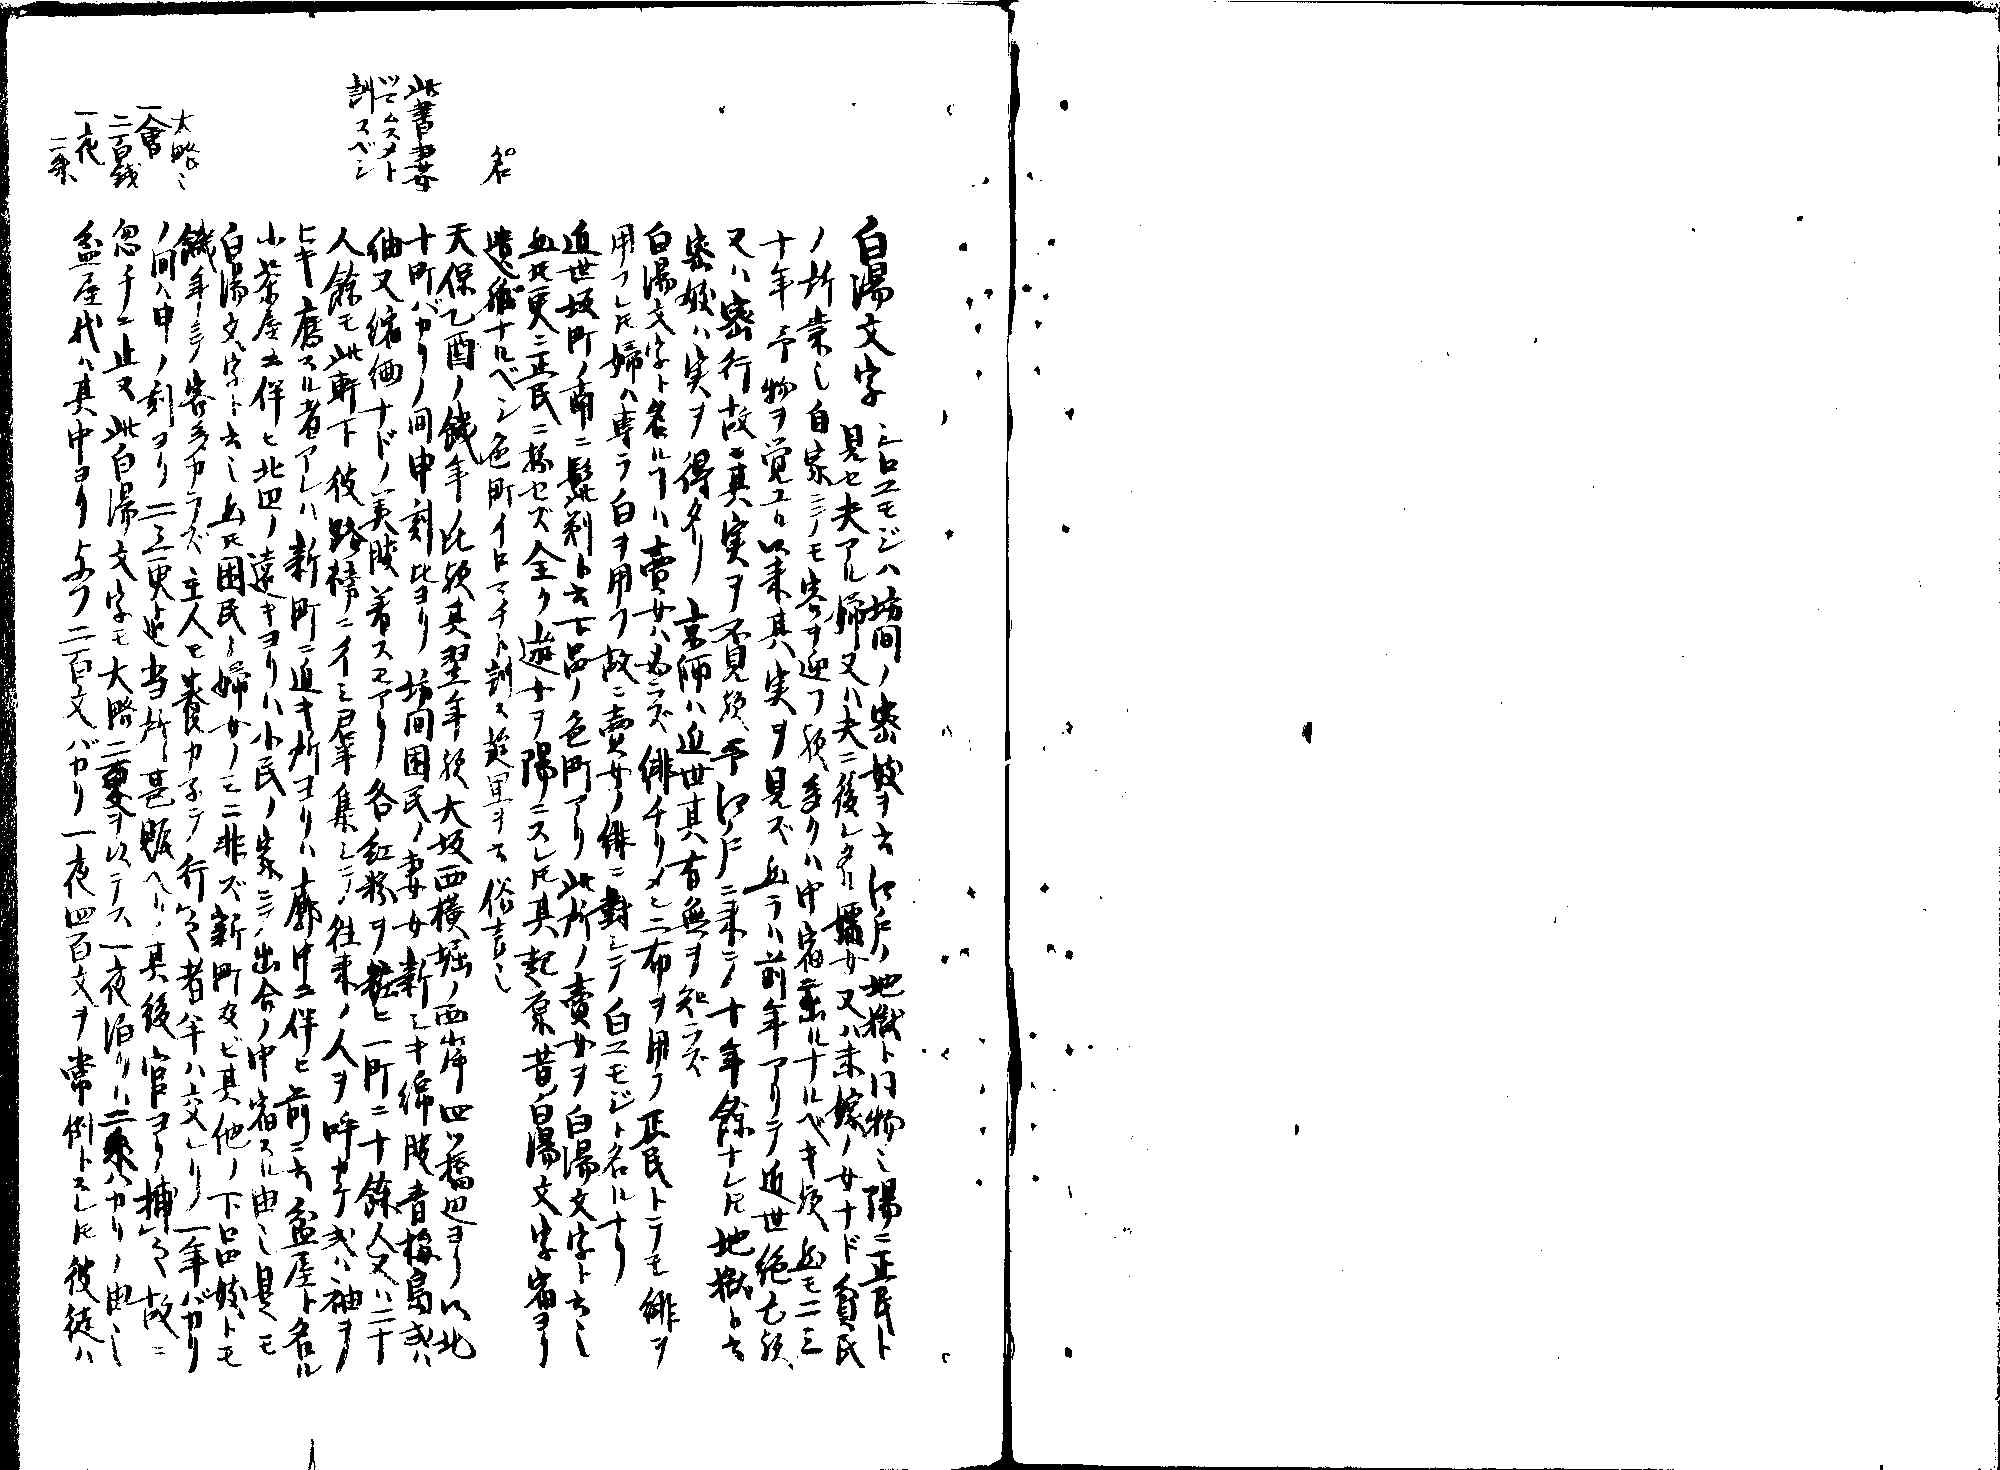 白湯文字 シロユモジハ坊間ノ密妓ヲ云江戸ノ地獄ト同物ミ陽ニ正民ト
見セ夫アル婦又ハ夫ニ後レタル孀女又ハ未嫁ノ女ナド貧民
ノ所業ミ自家ニテモ客ヲ迎フ歟多クハ中宿ニ出ルナルベキ歟且モ二三
十年予物ヲ覚ユル以来其実ヲ見ズ且ラハ前年アリテ近世絶亡歟
又ハ密行故ニ真実ヲ不見歟予江戸ニ来テ十年餘ナレドモ地獄ト云
密妓ハ実ヲ得タリ京師ハ近世其有無ヲ知ラズ
白湯文字ト名ルコハ賣女ハ必ラズ緋チリメン二布ヲ用フ正民トテモ緋ヲ
用フレドモ婦ハ専ラ白ヲ用フ故ニ賣女ノ緋ニ對シテ白ユモジト名ルナリ
近世坂町ノ南ニ髭剃ト云下品ノ色町アリ此所ノ賣女ヲ白湯文字ト云ミ
且此更ニ正民ニ扮セズ全ク遊女ヲ陽ニスレドモ其起原昔白湯文字宿ヨリ
遺ル名ナルベシ色町イロマチト訓ス花里ヲ云俗言ミ
名
天保乙酉ノ饑年ノ比歟其翌年歟大坂西横堀ノ西岸四ツ橋辺ヨリ以北
此書妻女
ツマムスメト
訓スベシ
十町バカリノ間申刻比ヨリ坊間困民ノ妻女新シキ綿服青梅島或ハ
紬又縮緬ナドノ美服着スモアリ各紅粉ヲ粧ヒ一町ニ十餘人又ハ二十
人餘モ此軒下彼路傍ニイミ羣集シテ往来ノ人ヲ呼カケ或ハ袖ヲ
ヒキ應スル者アレハ新町ニ近キ所ヨリハ廓中ニ伴ヒ前ニ云盆屋ト名ル
小茶屋ニ伴ヒ北四ノ遠キヨリハ小民ノ家ニテ出合ノ中宿スル由ミ是モ
白湯文字ト云ミ且此困民ノ婦女ノミニ非ズ新町及ビ其他ノ下品妓トモ
饑年ニテ客多カラズ主人モ養カネテ行シムル者半ハ交レリ一年バカリ
ノ間ハ申ノ刻ヨリ二三更迄当所甚賑ヘリ其後官ヨリ捕シム故ニ
忽チニ止ヌ此白湯文字モ大略二朱ヲ以テス一夜泊リハ二朱バカリノ由ミ
大略ミ
一會
二百銭
一夜
二朱
盆屋代ハ其中ヨリ与フ二百文バカリ一夜四百文ヲ常例トスレドモ彼徒ハ